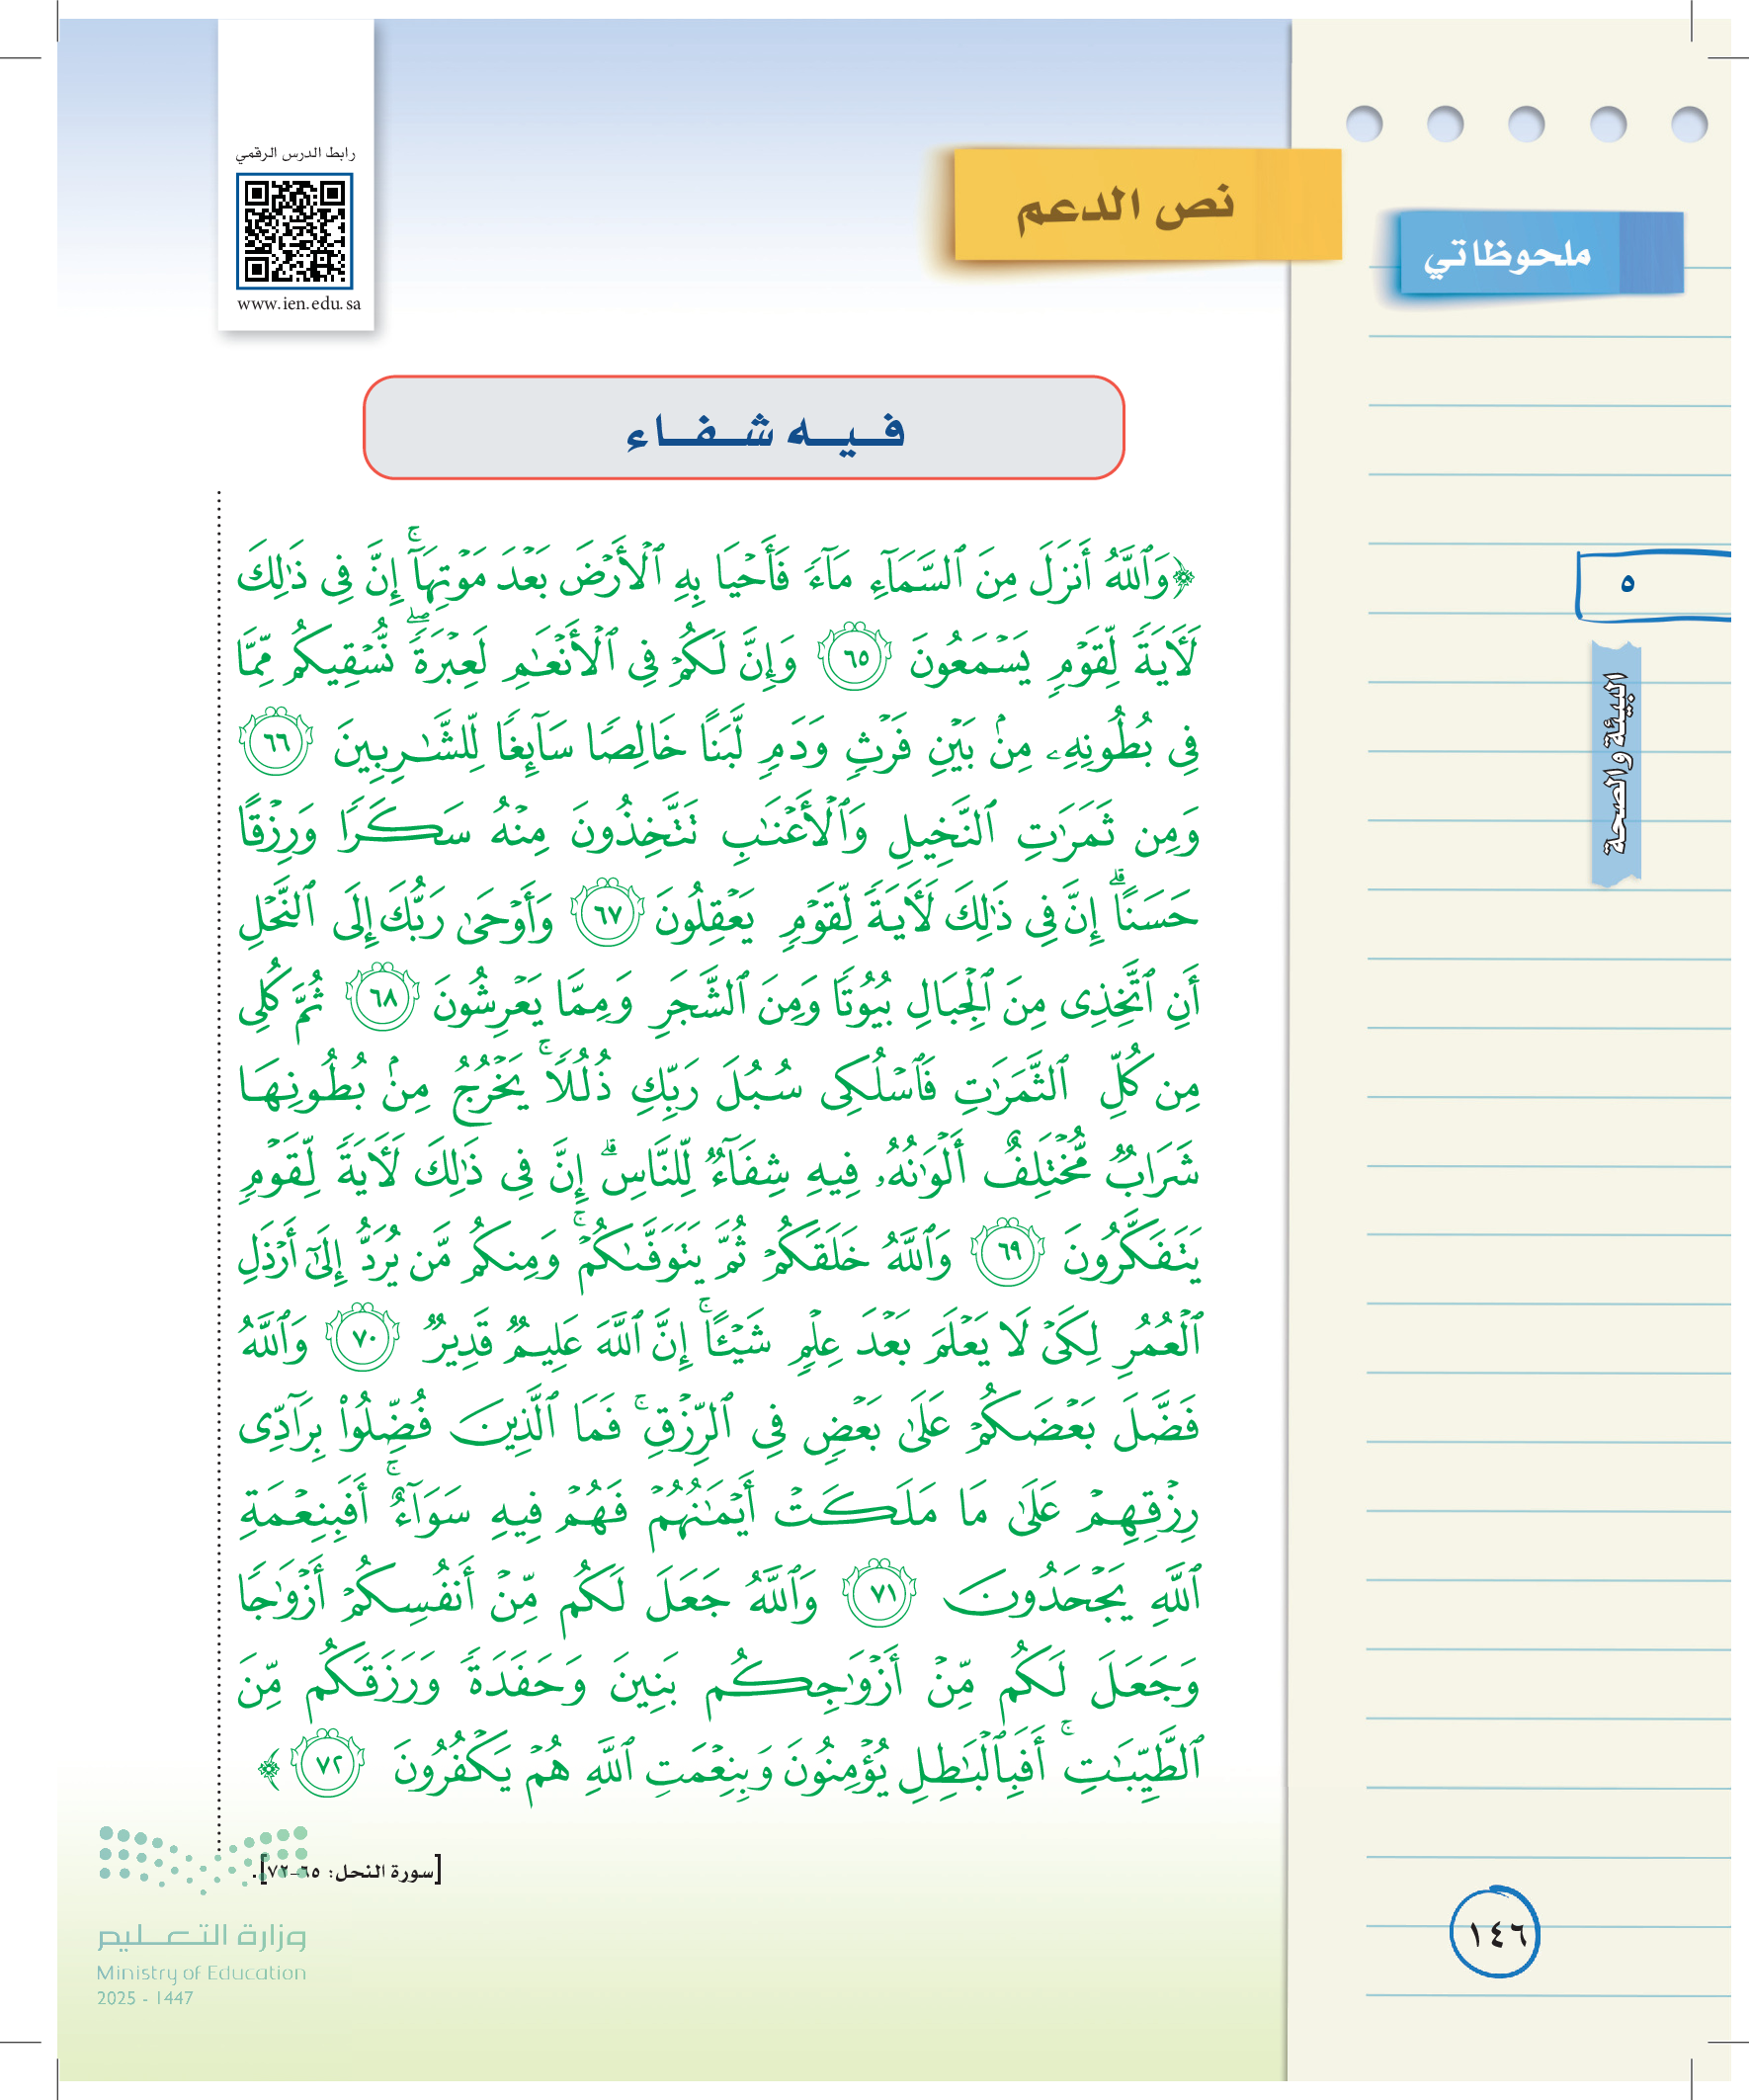 رابط الدرس الرقمي
www.ien.edu.sa
نص الدعم
ملحوظاتي
فيه شفاء
٥
البيئة والصحة
﴿وَٱللَّهُ أَنزَلَ مِنَ ٱلسَّمَآءِ مَآءً فَأَحۡيَا بِهِ ٱلۡأَرۡضَ بَعۡدَ مَوۡتِهَآۚ إِنَّ فِي ذَٰلِكَ
لَأٓيَةً لِّقَوۡمٍ يَسۡمَعُونَ ٦٥ وَإِنَّ لَكُمۡ فِي ٱلۡأَنۡعَٰمِ لَعِبۡرَةًۖ نُّسۡقِيكُم مِّمَّا
فِي بُطُونِهِۦ مِنۢ بَيۡنِ فَرۡثٍ وَدَمٍ لَّبَنًا خَالِصًا سَآئِغًا لِّلشَّٰرِبِينَ ٦٦
وَمِن ثَمَرَٰتِ ٱلنَّخِيلِ وَٱلۡأَعۡنَٰبِ تَتَّخِذُونَ مِنۡهُ سَكَرًا وَرِزۡقًا
حَسَنًاۗ إِنَّ فِي ذَٰلِكَ لَأٓيَةً لِّقَوۡمٍ يَعۡقِلُونَ ٦٧ وَأَوۡحَىٰ رَبُّكَ إِلَى ٱلنَّحۡلِ
أَنِ ٱتَّخِذِي مِنَ ٱلۡجِبَالِ بُيُوتًا وَمِنَ ٱلشَّجَرِ وَمِمَّا يَعۡرِشُونَ ٦٨ ثُمَّ كُلِي
مِن كُلِّ ٱلثَّمَرَٰتِ فَٱسۡلُكِي سُبُلَ رَبِّكِ ذُلُلًاۚ يَخۡرُجُ مِنۢ بُطُونِهَا
شَرَابٌ مُّخۡتَلِفٌ أَلۡوَٰنُهُۥ فِيهِ شِفَآءٌ لِّلنَّاسِۗ إِنَّ فِي ذَٰلِكَ لَأٓيَةً لِّقَوۡمٍ
يَتَفَكَّرُونَ ٦٩ وَٱللَّهُ خَلَقَكُمۡ ثُمَّ يَتَوَفَّىٰكُمۡۚ وَمِنكُم مَّن يُرَدُّ إِلَىٰٓ أَرۡذَلِ
ٱلۡعُمُرِ لِكَيۡ لَا يَعۡلَمَ بَعۡدَ عِلۡمٍ شَيۡـًٔاۚ إِنَّ ٱللَّهَ عَلِيمٌ قَدِيرٌ ٧٠ وَٱللَّهُ
فَضَّلَ بَعۡضَكُمۡ عَلَىٰ بَعۡضٍ فِي ٱلرِّزۡقِۚ فَمَا ٱلَّذِينَ فُضِّلُواْ بِرَآدِّي
رِزۡقِهِمۡ عَلَىٰ مَا مَلَكَتۡ أَيۡمَٰنُهُمۡ فَهُمۡ فِيهِ سَوَآءٌۚ أَفَبِنِعۡمَةِ
ٱللَّهِ يَجۡحَدُونَ ٧١ وَٱللَّهُ جَعَلَ لَكُم مِّنۡ أَنفُسِكُمۡ أَزۡوَٰجًا
وَجَعَلَ لَكُم مِّنۡ أَزۡوَٰجِكُم بَنِينَ وَحَفَدَةً وَرَزَقَكُم مِّنَ
ٱلطَّيِّبَٰتِۚ أَفَبِٱلۡبَٰطِلِ يُؤۡمِنُونَ وَبِنِعۡمَتِ ٱللَّهِ هُمۡ يَكۡفُرُونَ ٧٢﴾
[سورة النحل: ٦٥-٧٢].
وزارة التعليم
Ministry of Education
2025 - 1447
١٤٦